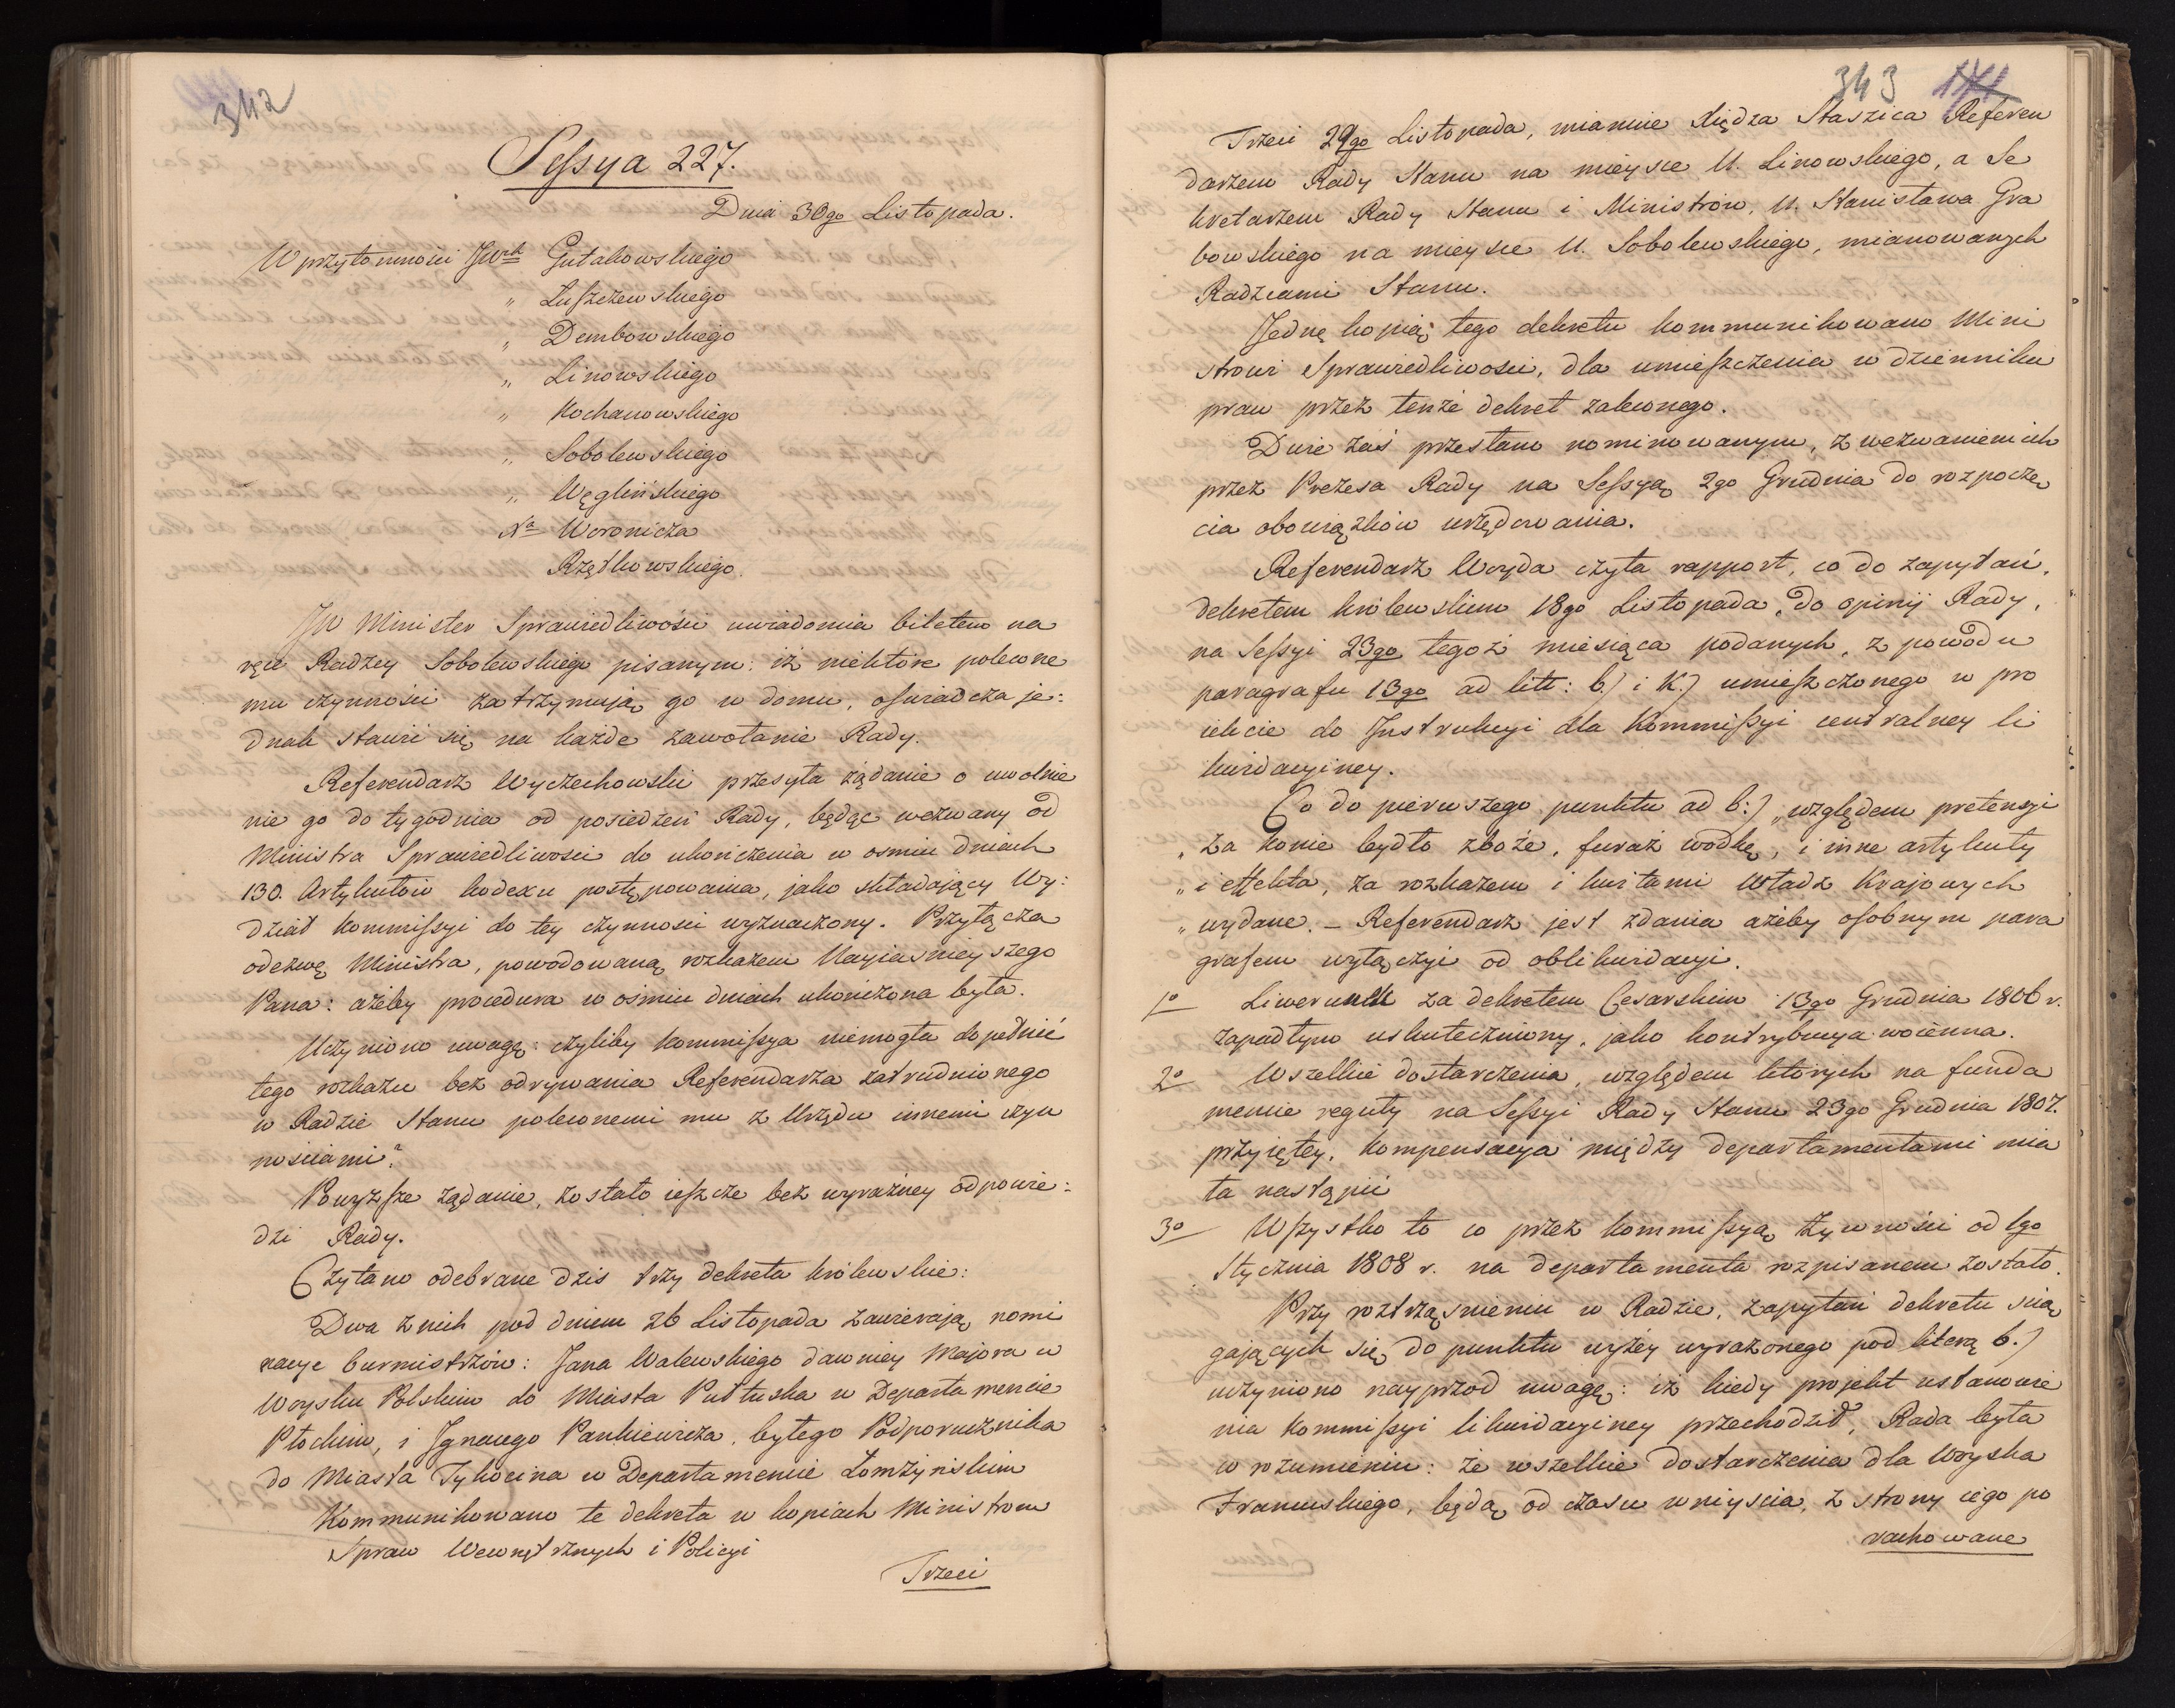 342
Sessya 227.
Dnia 30go Listopada.
W przytomności JWch Gutakowskiego
„ Łuszczewskiego
„ Dembowskiego
„ Linowskiego
„ Kochanowskiego
„ Sobolewskiego
„ Węglińskiego
Xa Woronicza
Rzętkowskiego.
JW Minister Sprawiedliwości uwiadomia biletem na
ręce Radzcy Sobolewskiego pisanym: iż niektóre polecone
mu czynności zatrzymują go w domu, oświadcza je:
dnak stawić się na każde zawołanie Rady.
Referendarz Wyczechowski przesyła żądanie o uwolnie
nie go do tygodnia od posiedzeń Rady, będąc wezwany od
Ministra Sprawiedliwości do ukończenia w osmiu dniach
130. Artykułów kodexu postępowania, jako składający Wy:
dział Kommissyi do tey czynności wyznaczony. Przyłącza
odezwę Ministra, powodowaną rozkazem Nayjaśnieyszego
Pana: ażeby procedura w ośmiu dniach ukończona była.
Uczyniono uwagę: czyliby Kommissya niemogła dopełnić
tego rozkazu bez odrywania Referendarza zatrudnionego
w Radzie Stanu poleconemi mu z Urzędu innemi czyn
nościami?
Powyższe żądanie, zostało ieszcze bez wyraźney odpowie:
dzi Rady.
Czytano odebrane dzis trzy dekreta królewskie:
Dwa z nich pod dniem 26 Listopada zawierają nomi
nacye burmistrzów: Jana Walewskiego dawniey Majora w
Woysku Polskim do Miasta Pułtuska w Departamencie
Płockim, i Ignacego Pankiewicza, byłego Podporucznika
do Miasta Tykocina w Departamencie Łomżyńskim
Kommunikowano te dekreta w kopiach Ministrom
Spraw Wewnętrznych i Policyi
Trzeci
343 171
Trzeci 29go Listopada, mianuie Xiędza Staszica Referen
darzem Rady Stanu na mieysce U. Linowskiego, a Se
kretarzem Rady Stanu i Ministrów, U. Stanisława Gra
bowskiego na mieysce U. Sobolewskiego, mianowanych
Radzcami Stanu.
Jednę kopią tego dekretu kommunikowano Mini
strowi Sprawiedliwości, dla umieszczenia w dzienniku
praw przez tenże dekret zaleconego.
Dwie zaś przesłano nominowanym, z wezwaniem ich
przez Prezesa Rady na Sessyą 2go Grudnia do rozpoczę
cia obowiązków urzędowania.
Referendarz Woyda czyta rapport, co do zapytań,
dekretem królewskim 18go Listopada, do opinij Rady,
na Sessyi 23go tegoż miesiąca podanych, z powodu
paragrafu 13go ad litt: b.) i K.) umieszczonego w pro
iekcie do Instrukcyi dla Kommissyi centralney li
kwidacyiney.
Co do pierwszego punktu ad b:) „względem pretensyi
„za konie bydło zboże, furaż wodkę, i inne artykuły
„i effekta, za rozkazem i kwitami Władz Krajowych
„wydane. – Referendarz jest zdania ażeby osobnym para
grafem wyłączyć od oblikwidacyi.
1o Liwerunek za dekretem Cesarskim 13go Grudnia 1806 r.
zapadłym uskuteczniony, jako kontrybucya woienna.
2o Wszelkie dostarczenia, względem których na funda
mencie reguły na Sessyi Rady Stanu 23go Grudnia 1807.
przyiętey, kompensacya między departamentami mia
ła nastąpić
3o Wszystko to co przez kommissyą żywności od 1go
Stycznia 1808 r. na departamenta rozpisanem zostało.
Przy roztrząśnieniu w Radzie, zapytań dekretu scią
gających się do punktu wyżey wyrażonego pod literą b.)
uczyniono nayprzod uwagę: iż kiedy projekt ustanowie
nia Kommissyi likwidacyiney przechodził, Rada była
w rozumieniu: że wszelkie dostarczenia dla Woyska
Francuskiego, będą od czasu wniyscia, z strony iego po
rachowane